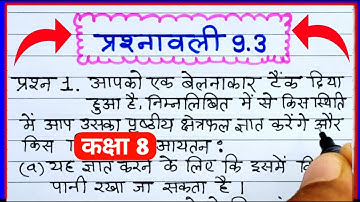 प्रश्नावली 9.3
प्रश्न 1. आपको एक बेलनाकार टैंक दिया
हुआ है, निम्नलिखित में से किस स्थिति
में आप उसका पृष्ठीय क्षेत्रफल ज्ञात करेंगे और
किस कक्षा 8 आयतन :
(a) यह ज्ञात करने के लिए कि इसमें कि
पानी रखा जा सकता है ।